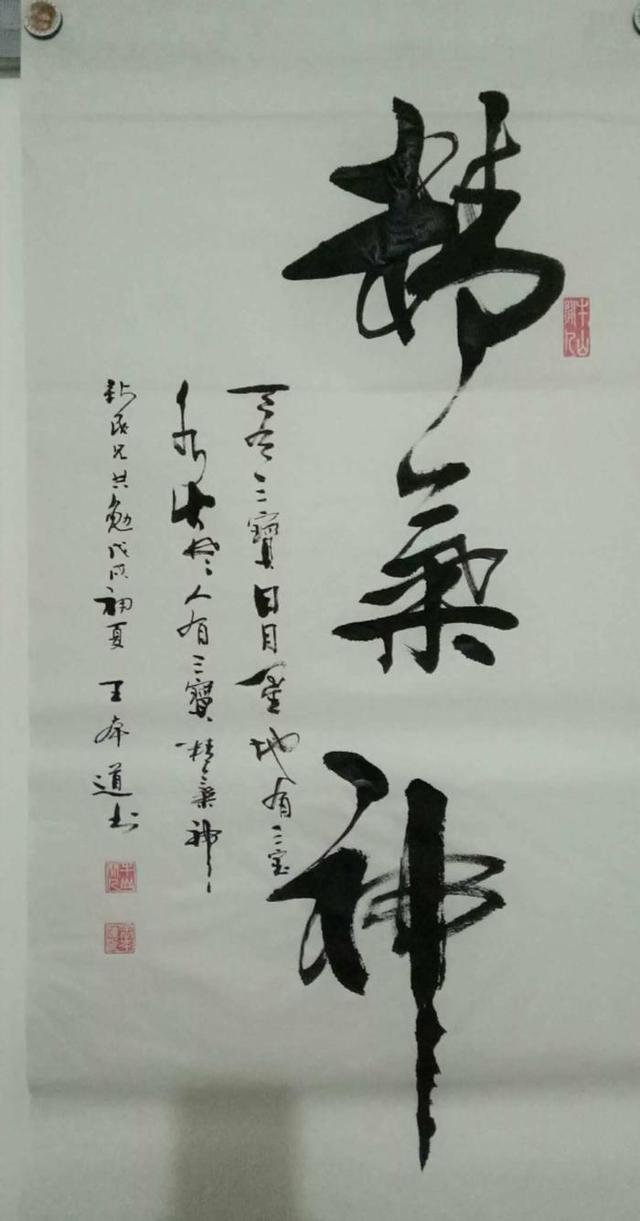 精氣神
天有三寶日月星地有三宝
水火風人有三寶精氣神
新民兄共勉戊戌初夏 王本道书